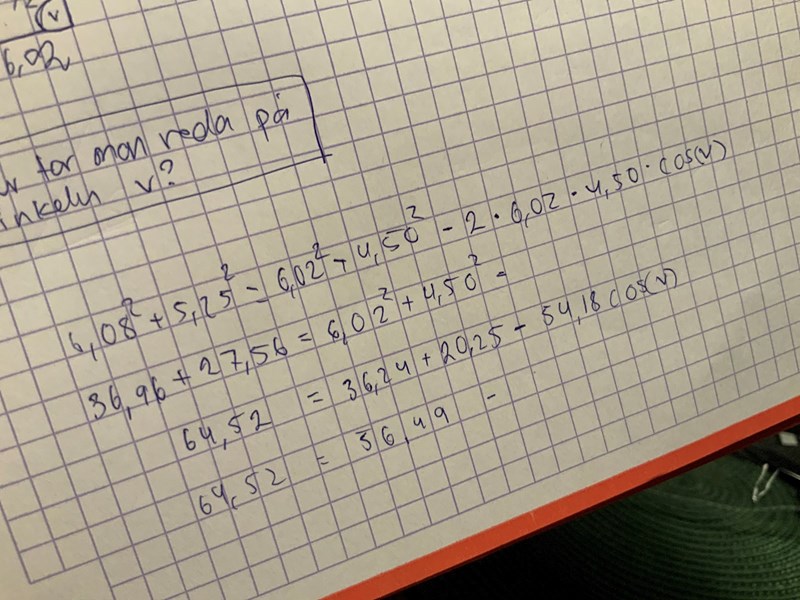 v
6,02
får man reda på
inkeln v?
6,08² + 5,25² = 6,02² + 4,50² - 2 · 6,02 · 4,50 · cos(v)
36,96 + 27,56 = 6,02² + 4,50² -
64,52 = 36,24 + 20,25 - 54,18 cos(v)
64,52 = 36,49 -